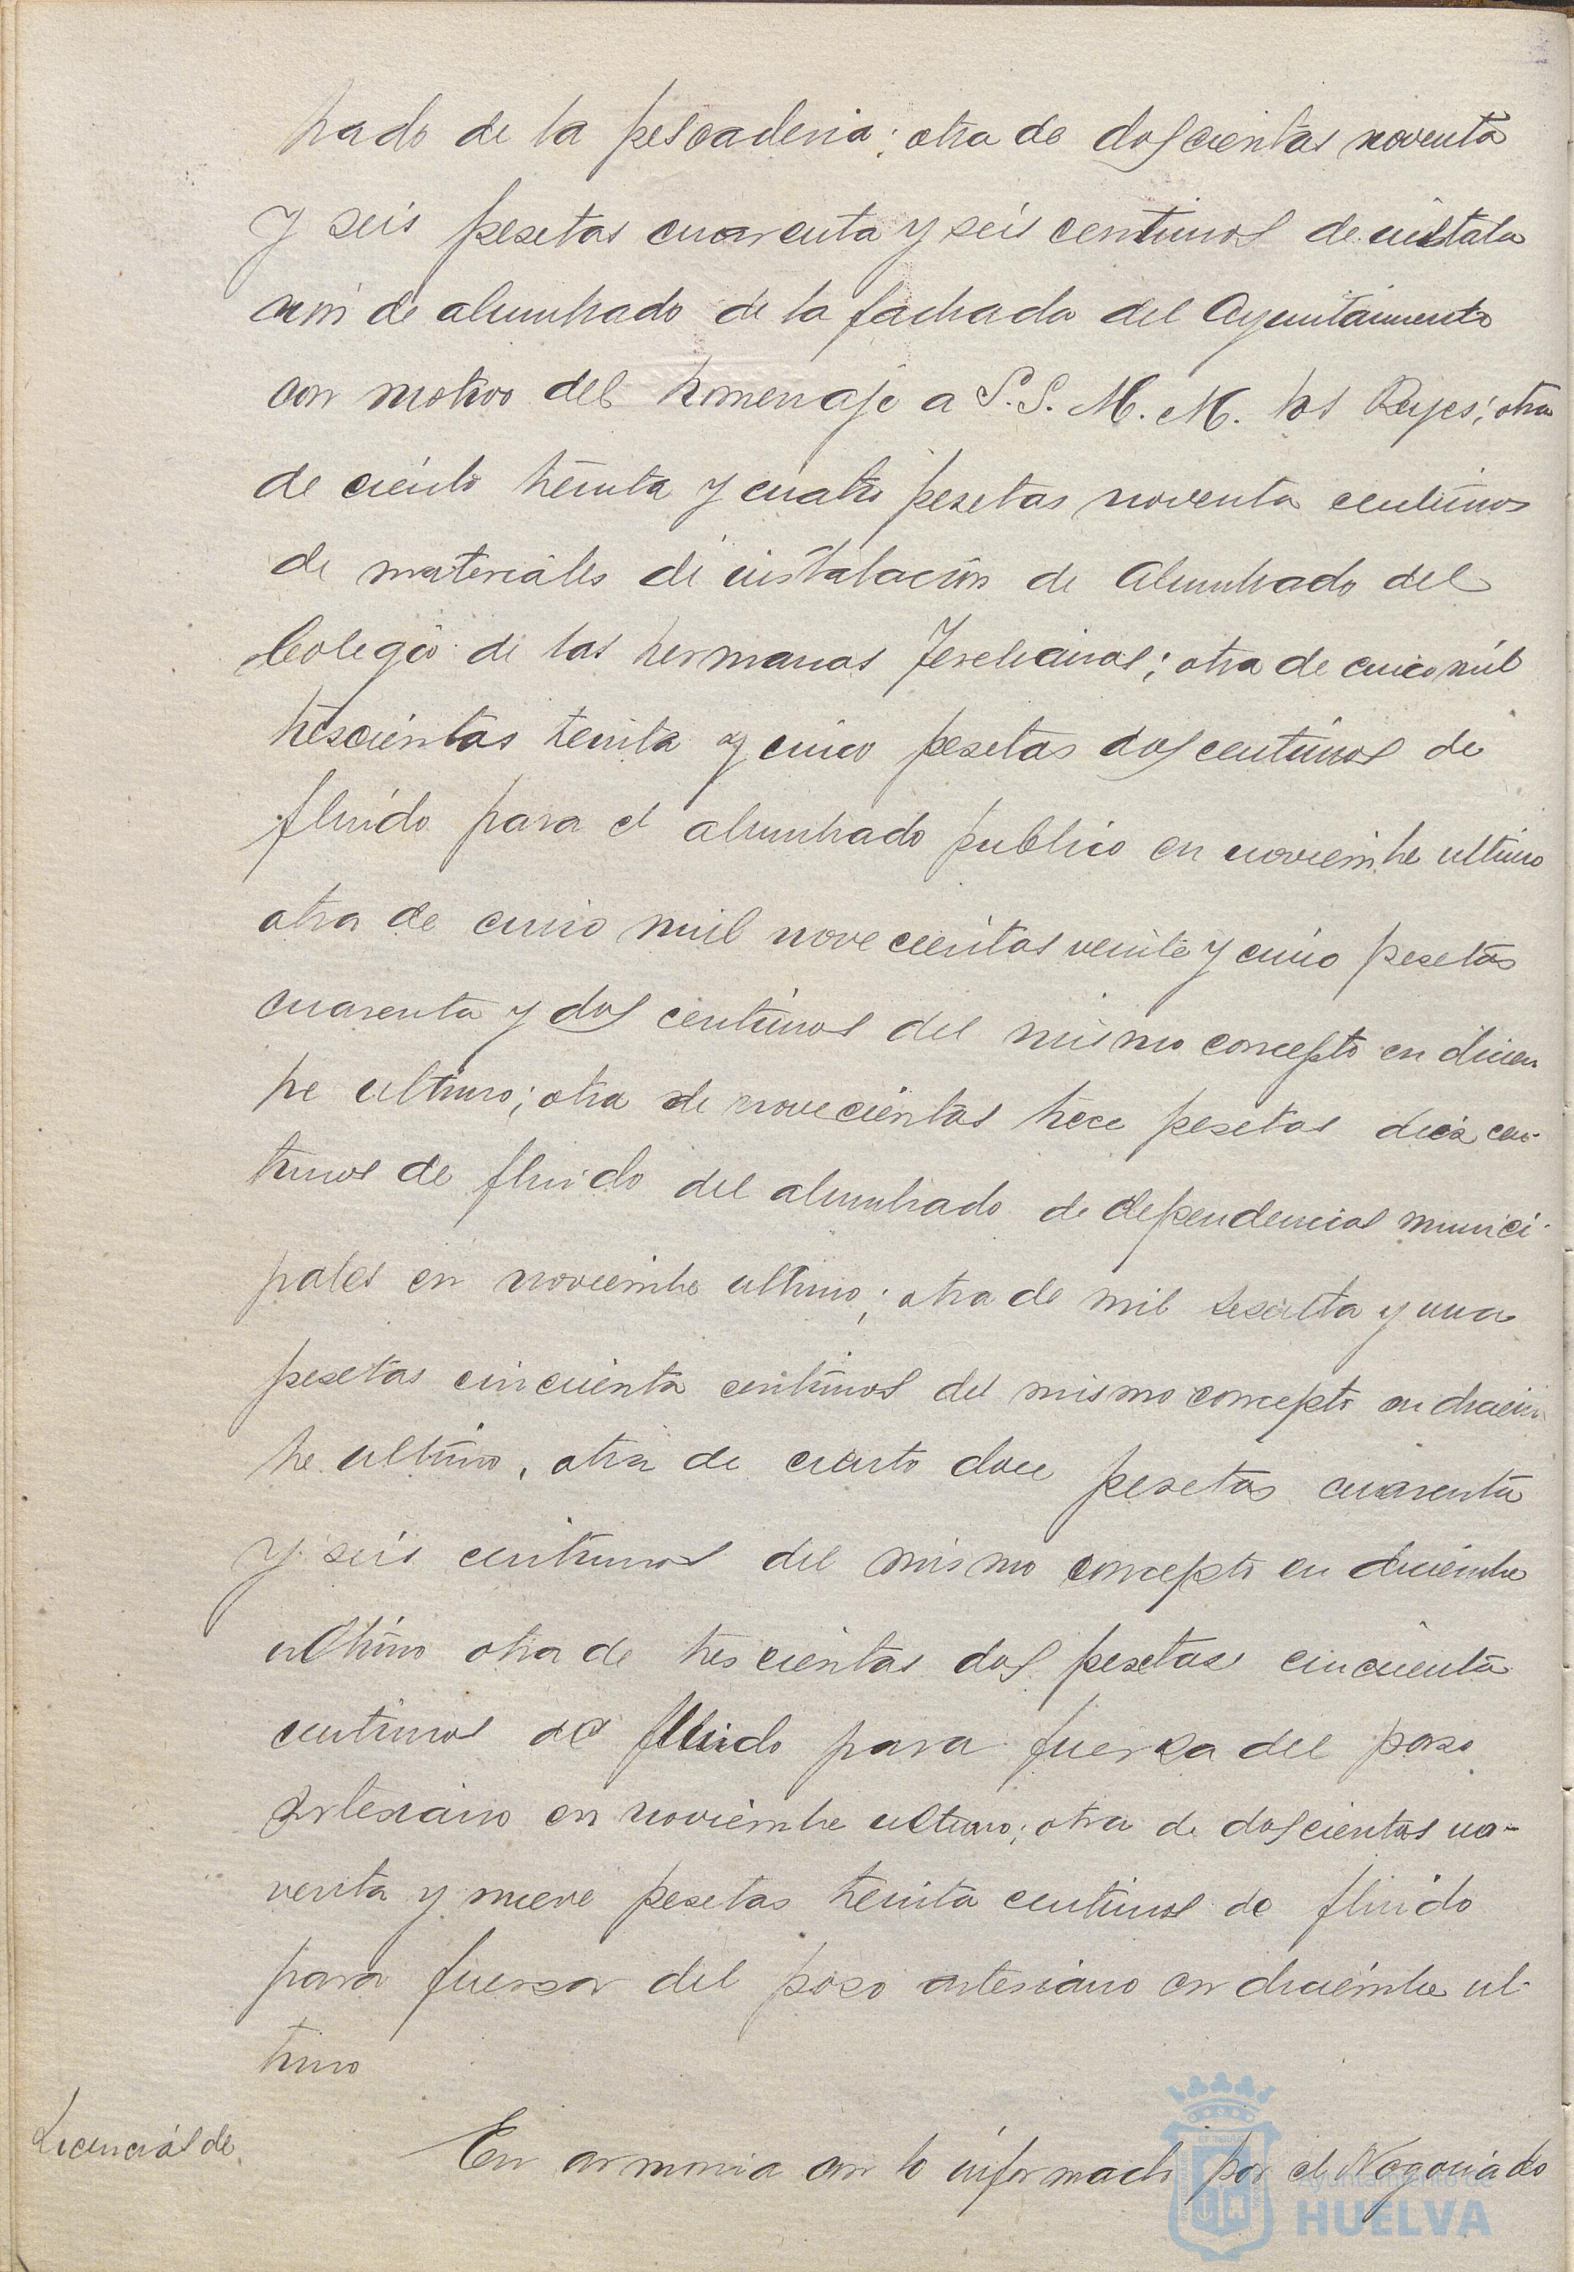 brado de la pescaderia; otra de doscientas noventa
y seis pesetas cuarenta y seis centimos de instala
ción de alumbrado de la fachada del Ayuntamiento
con motivo del homenaje a S.S. M.M. los Reyes; otra
de ciento treinta y cuatro pesetas noventa centimos
de materiales de instalación de alumbrado del
Colegio de las hermanas Teresianas; otra de cinco mil
trescientas treinta y cinco pesetas dos centimos de
fluido para el alumbrado publico en noviembre ultimo
otra de cinco mil novecientas veinte y cinco pesetas
cuarenta y dos centimos del mismo concepto en diciem
bre ultimo; otra de novecientas trece pesetas diez cen-
timos de fluido del alumbrado de dependencias munici-
pales en noviembre ultimo; otra de mil sesenta y una
pesetas cincuenta centimos del mismo concepto en diciem
bre ultimo, otra de ciento doce pesetas cuarenta
y seis centimos del mismo concepto en diciembre
ultimo otra de trescientas dos pesetas cincuenta
centimos de fluido para fuerza del pozo
artesiano en noviembre ultimo; otra de doscientas no-
venta y nueve pesetas treinta centimos de fluido
para fuerza del pozo artesiano en diciembre ul-
timo
Licencias de
En armonia con lo informado por el Negociado
Ayuntamiento de
HUELVA